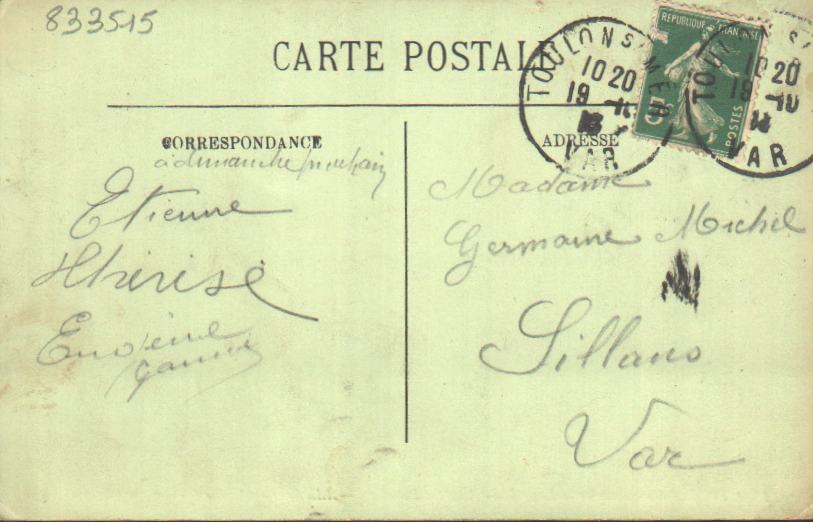 833515
CARTE POSTALE
REPUBLIQUE FRANÇAISE
POSTES
TOULON S MER
10 20
19 -10
VAR
TOU
10 20
19 -10
VAR
CORRESPONDANCE
à dimanche prochain
Etienne
Thérèse
Eugène
ADRESSE
Madame
Germaine Michel
Sillans
Var